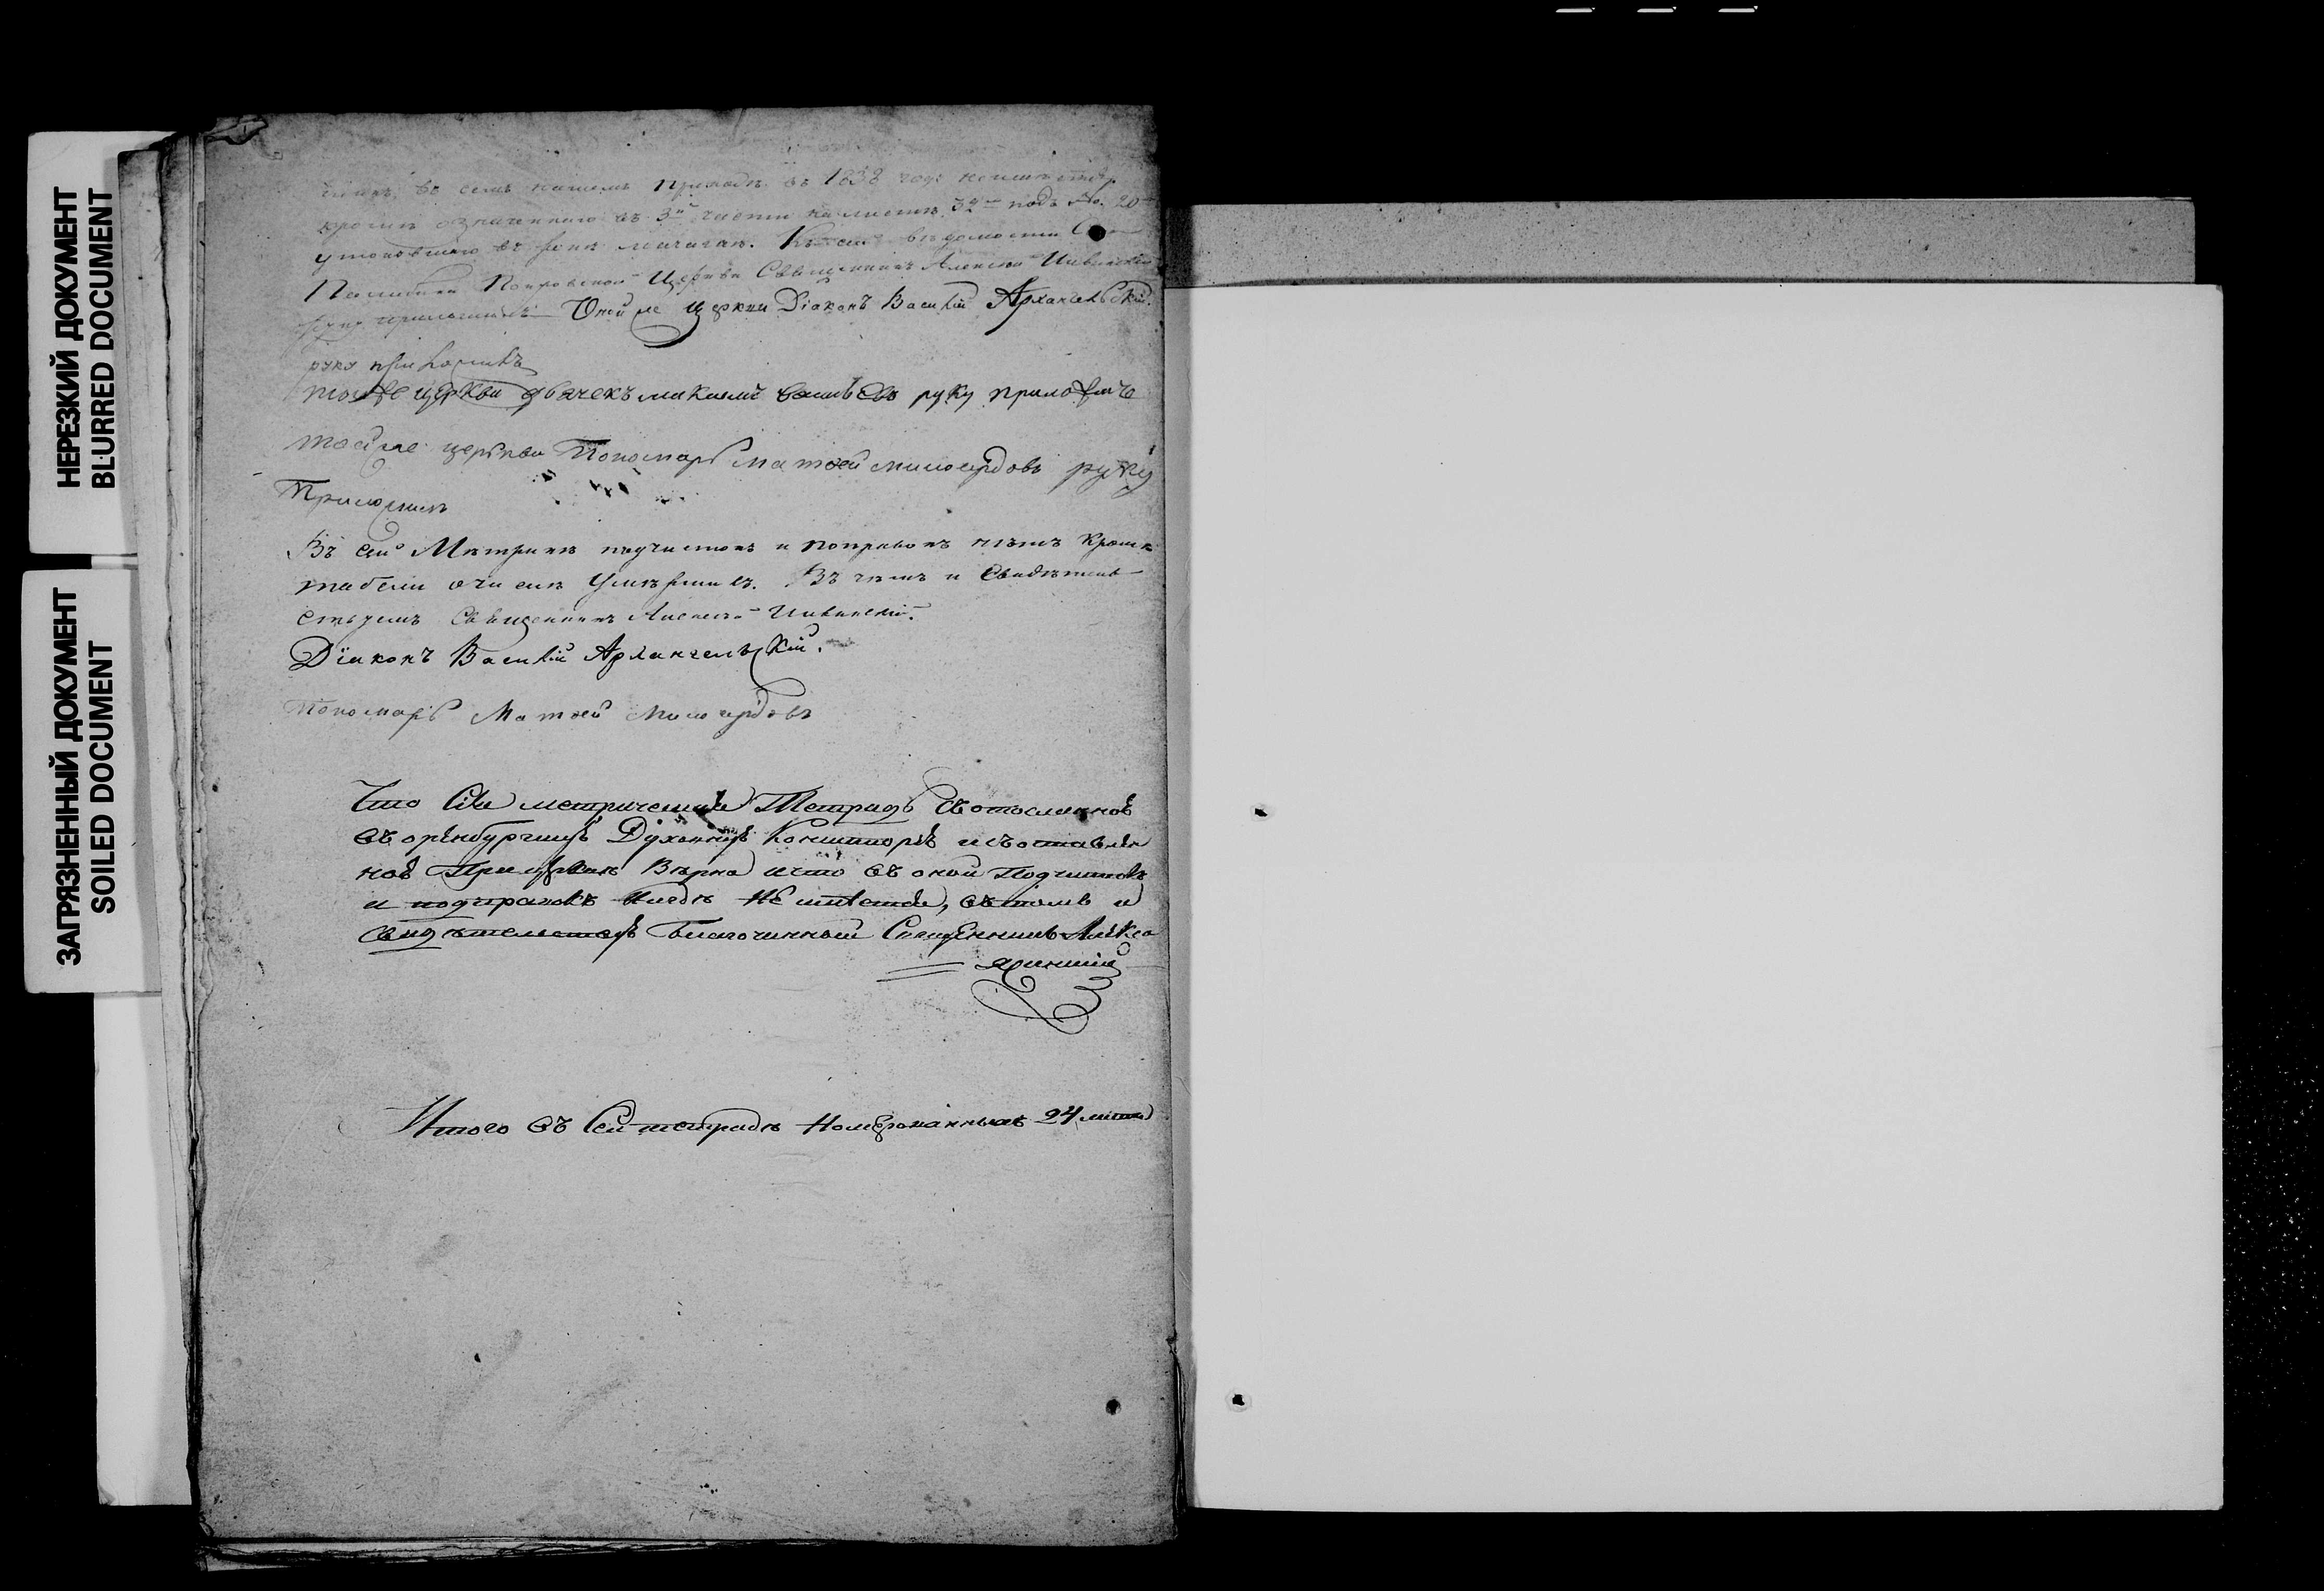 НЕРЕЗКИЙ ДОКУМЕНТ
BLURRED DOCUMENT
ЗАГРЯЗНЕННЫЙ ДОКУМЕНТ
SOILED DOCUMENT
въ семъ нашемъ приходѣ въ 1838 годѣ
кромѣ означеннаго въ 3й части на листѣ подъ No. 20
утонувшаго въ рѣкѣ Къ сей вѣдомости
Покровской Церкви Священникъ Алексѣй
руку приложилъ Оной же церкви Діаконъ Василій Архангельскій
руку приложилъ
той же церкви дьячекъ руку приложилъ
той же церкви Пономарь Матвей Милосердовъ руку
Приложилъ
Въ сей Метрикѣ подчистокъ и поправокъ нѣтъ кромѣ
табели о числѣ умѣршихъ. Въ чемъ и Свидѣтель-
ствуемъ Священникъ Алексѣй
Діаконъ Василій Архангельскій.
Пономарь Матвей Милосердовъ
Что Сія метрическая Тетрадь Съ отосланной
въ оренбургскую Духовную Консисторію и съ оставлен
ной При церквѣ Вѣрна и что въ оной Подчистокъ
и нигдѣ не имѣется, въ томъ и
свидѣтельствую Благочинный Священникъ Алекс
Итого въ Сей тетрадѣ Номерованныхъ 24 листа